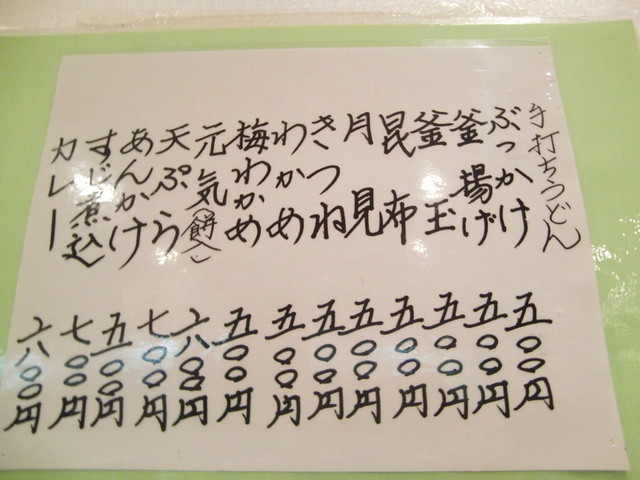 手打ちうどん
ぶっかけ 五〇〇円
釜揚げ 五〇〇円
釜玉 五〇〇円
昆布 五〇〇円
月見 五〇〇円
きつね 五〇〇円
わかめ 五〇〇円
梅わかめ 五〇〇円
元気(餅入) 六〇〇円
天ぷら 七〇〇円
あんかけ 五〇〇円
すじ煮込 七〇〇円
カレー 六〇〇円